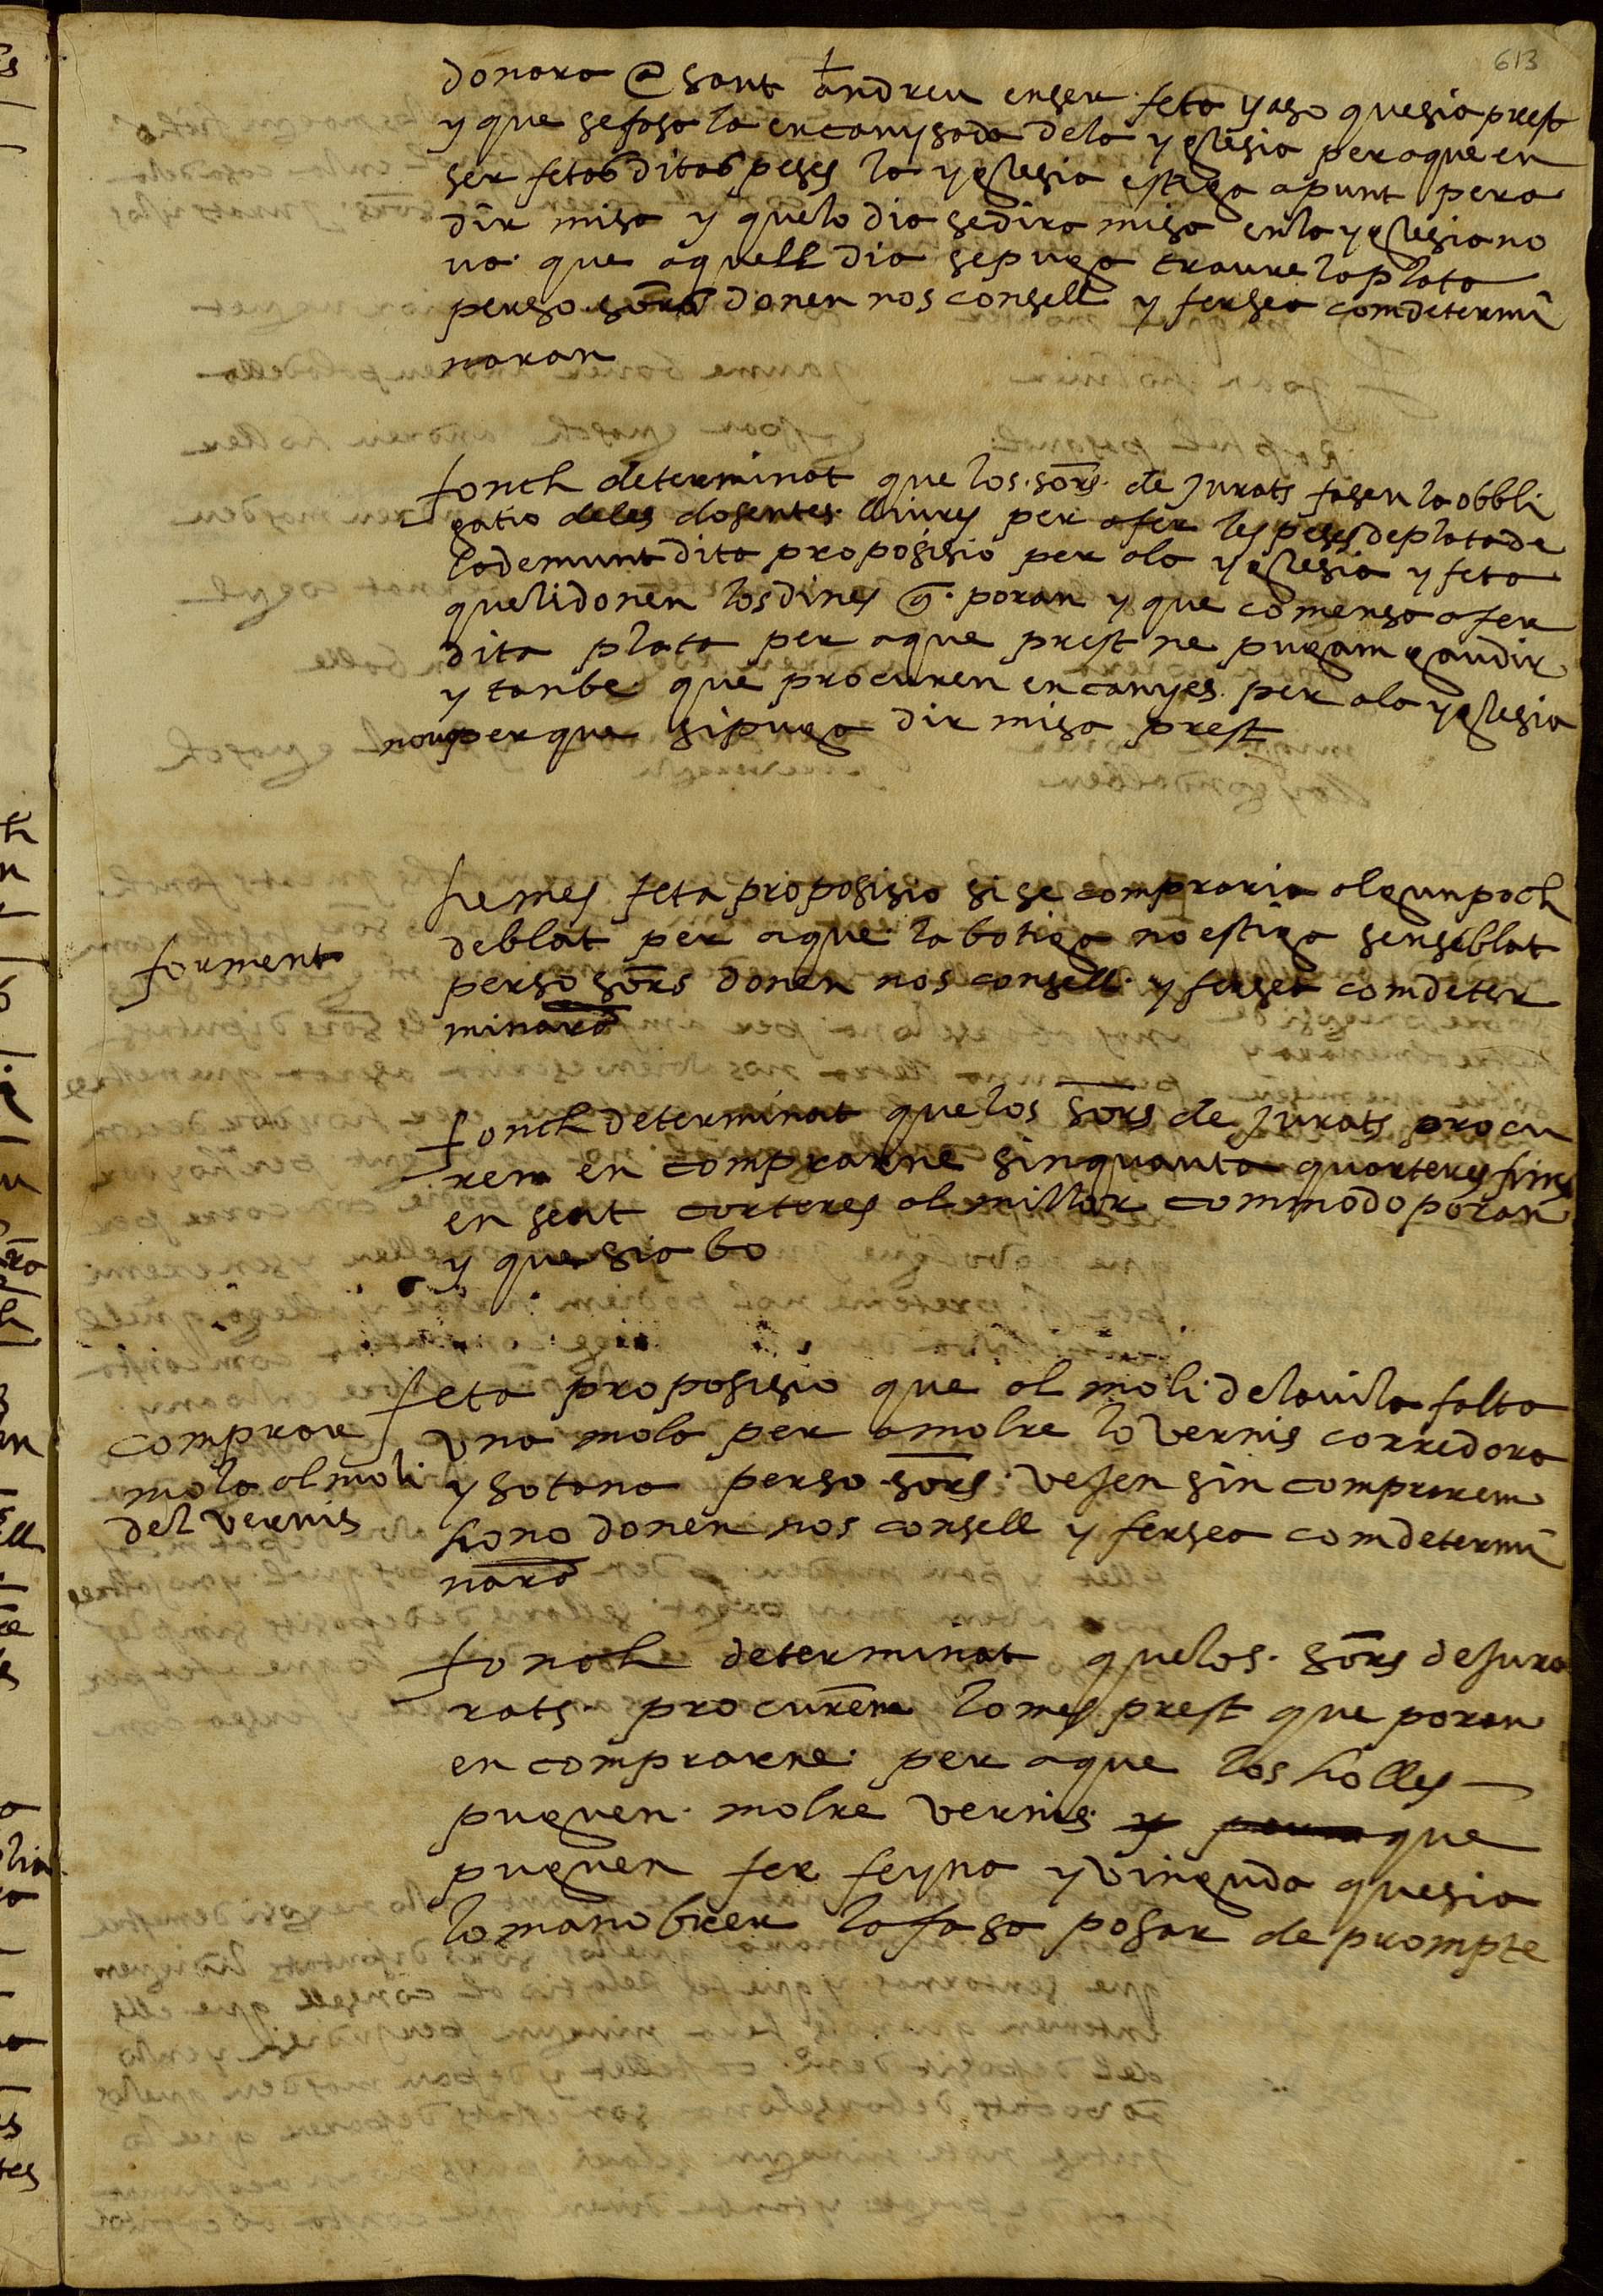 613
donara @ sant andreu en ser feta y aso que sia prest
y que se fasa la encanysada de la yglesia per aque en
ser fetas ditas peses la yglesia estiga apunt pera
dir misa y quelo dia se dira misa en la yglesia no
va que aquell dia se puga traure la plata
perso sors donen nos consell y ferse a com determi
naran
fonch determinat que los sors de jurats fasen la obbli
gatio de les dosentes lliures per a fer les peses de plata de
lademunt dita proposisio per a la yglesia y feta
que li donen los dines q poran y que comensa a fer
dita plata per aque prest ne pugam gaudir
y tanbe que procuren encanyes per a la yglesia
nova perque si puga dir misa prest
he mes feta proposisio si se compraria algun poch
forment
de blat per aque la botiga no estiga sens blat
perso sors donen nos consell y ferse a com deter
minara
fonch determinat que los sors de jurats procu
rem en comprarne sinquanta quarteres fins
en sent corteres al millor commodo poran
y que sia bo
feta proposisio que al moli de la vila falta
comprar
una mola per a molre lo vernis corredora
mola al moli
y sotana perso sors vejen sin comprarem
del vernis
ho no donen nos consell y ferse a com determi
nara
fonch determinat que los sors de jura
rats procurem lo mes prest que poran
en comprarne per aque los holles
puguen molre vernis y que
puguen fer feyna y vinguda que sia
lo manobrer la fasa posar de prompte